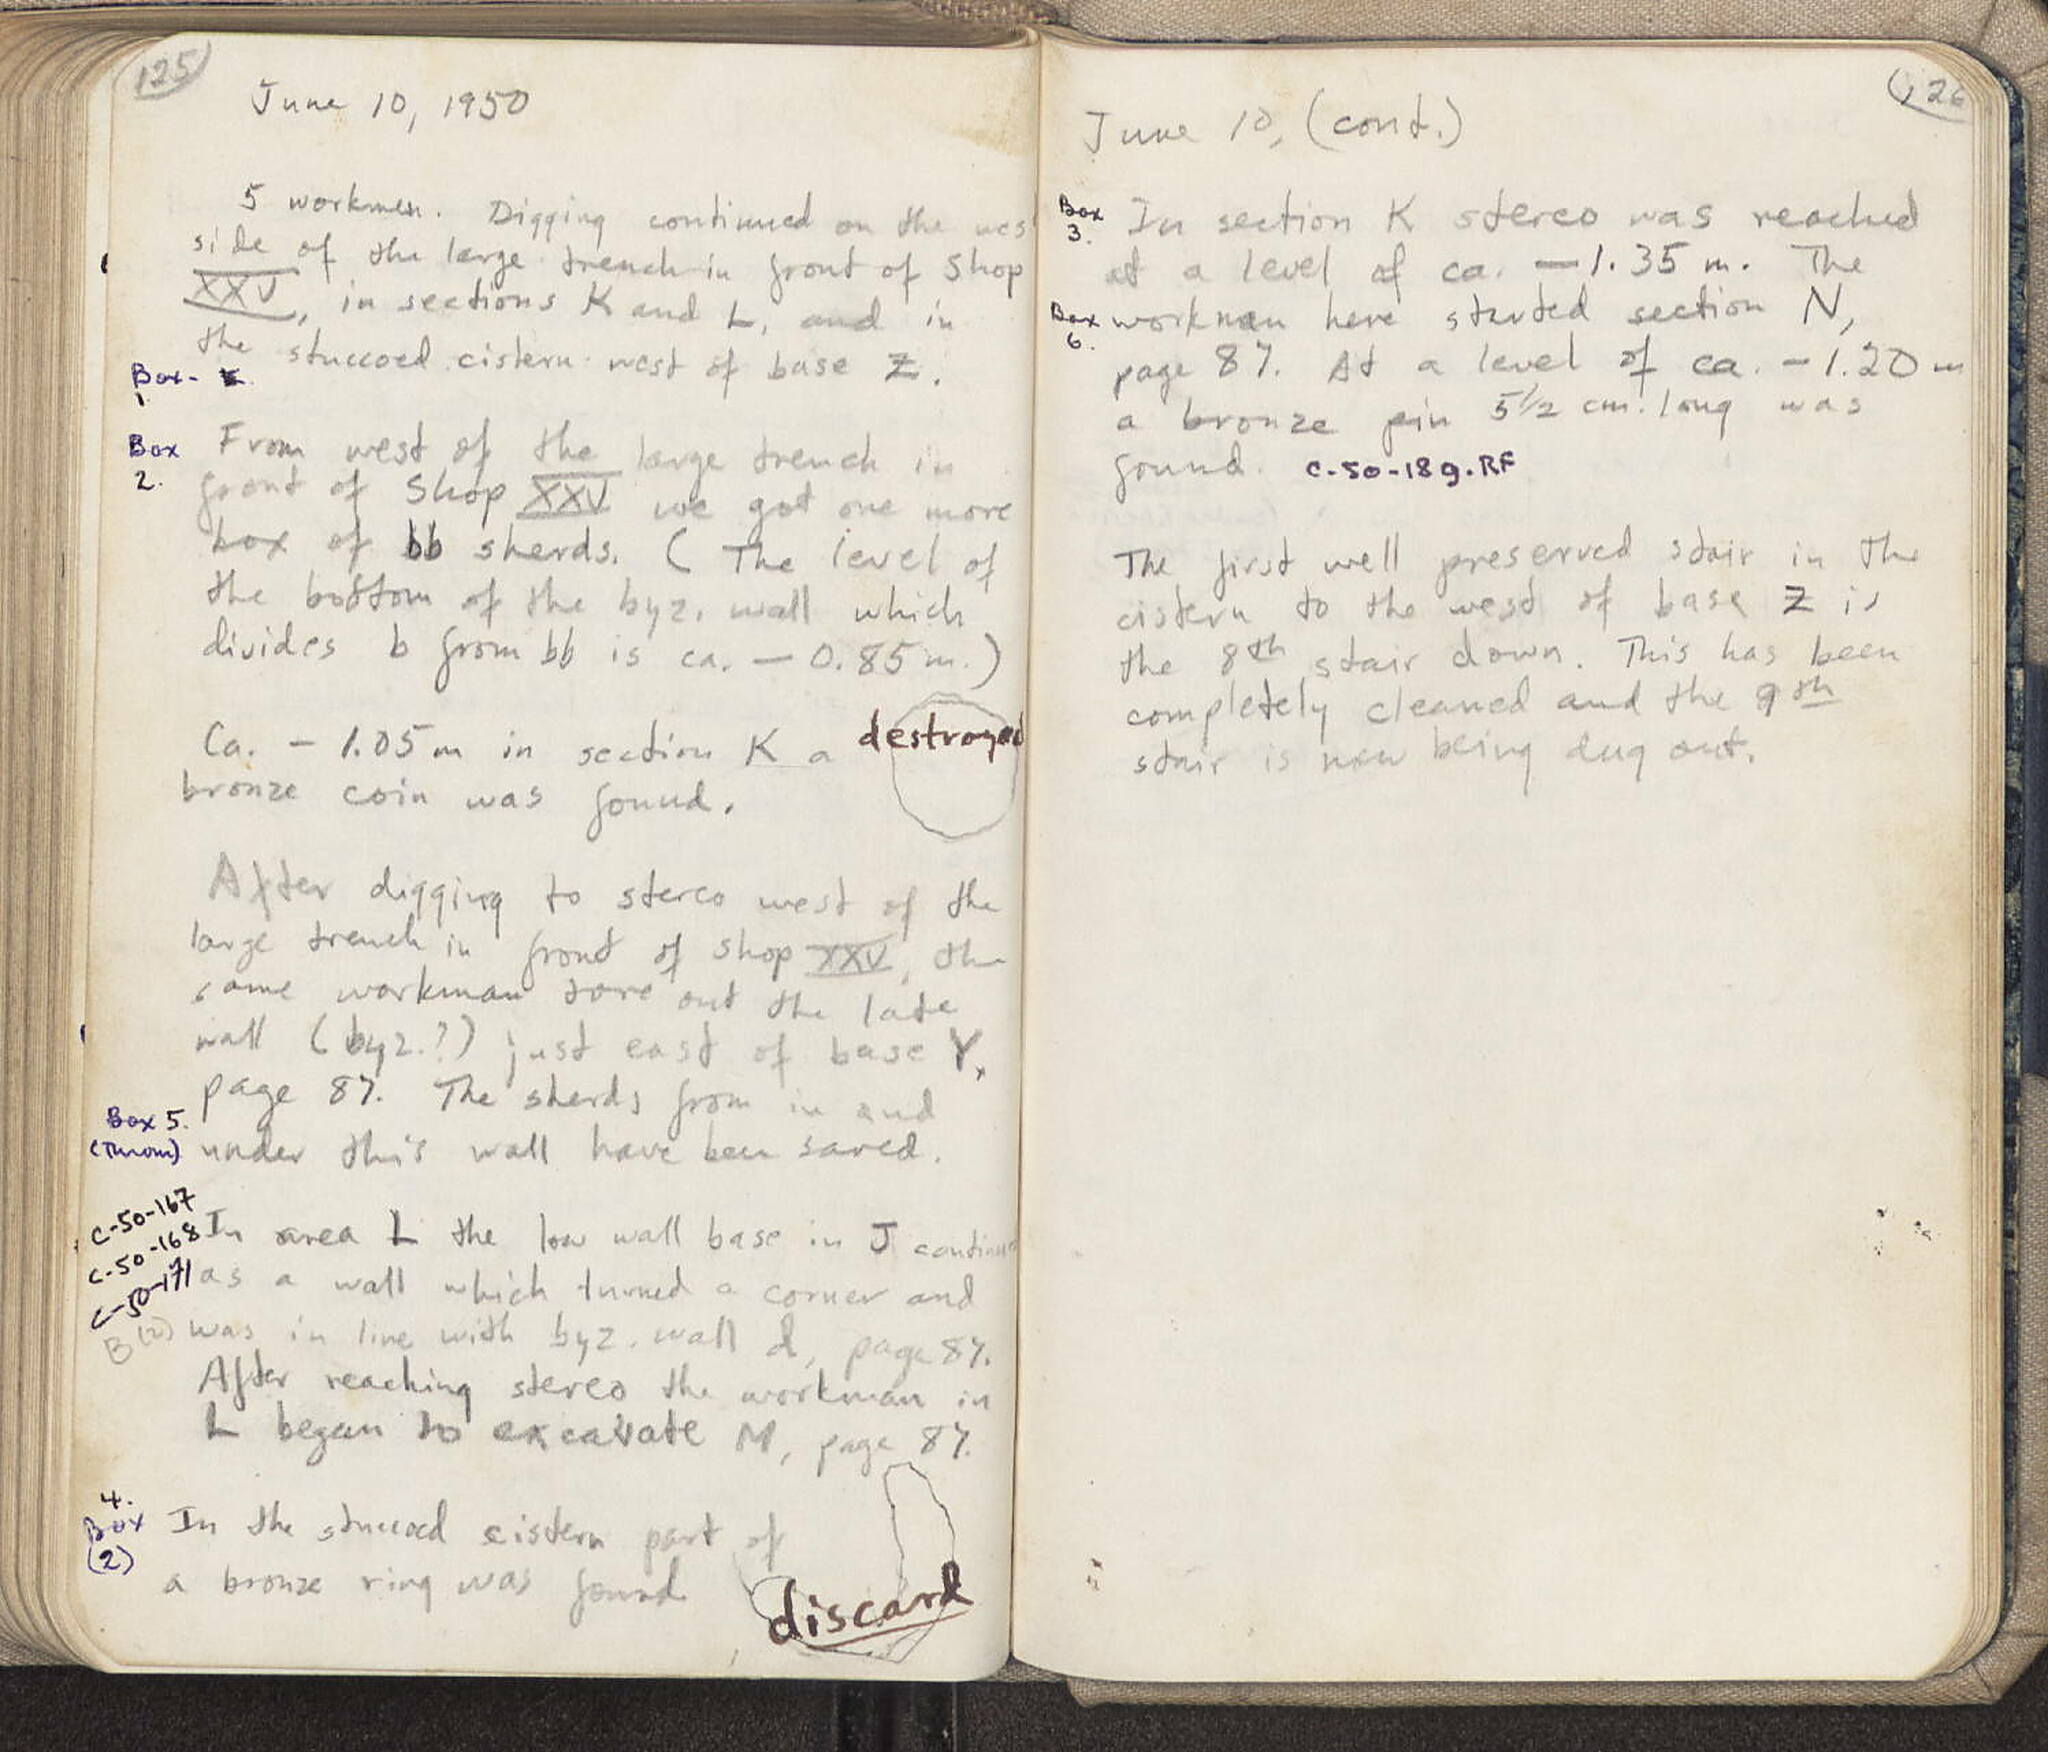 125
June 10, 1950
5 workmen. Digging continued on the wes
side of the large trench in front of Shop
XXV, in sections K and L, and in
the stuccoed cistern west of base Z.
Box-
1.
Box
2.
From west of the large trench in
front of Shop XXV we got one more
box of bb sherds. ( The level of
the bottom of the byz. wall which
divides b from bb is ca. — 0.85 m.)
Ca. - 1.05 m in section K a
destroyed
bronze coin was found.
After digging to stereo west of the
large trench in front of Shop XXV, the
same workman tore out the late
wall (byz.?) just east of base Y,
page 87. The sherds from in and
Box 5.
(Thrown)
under this wall have been saved.
C-50-167
C-50-168
C-50-171
B (2)
In area L the low wall base in J continu
as a wall which turned a corner and
was in line with byz. wall d, page 87.
After reaching stereo the workman in
L began to excavate M, page 87.
4.
Box
(2)
In the stuccoed cistern part of
a bronze ring was found
discard
126
June 10, (cont.)
Box
3.
In section K stereo was reached
at a level of ca. — 1.35 m. The
Box
6.
workman here started section N,
page 87. At a level of ca. - 1.20 m
a bronze pin 5 1/2 cm. long was
found. C-50-189.RF
The first well preserved stair in the
cistern to the west of base Z is
the 8th stair down. This has been
completely cleaned and the 9th
stair is now being dug out.